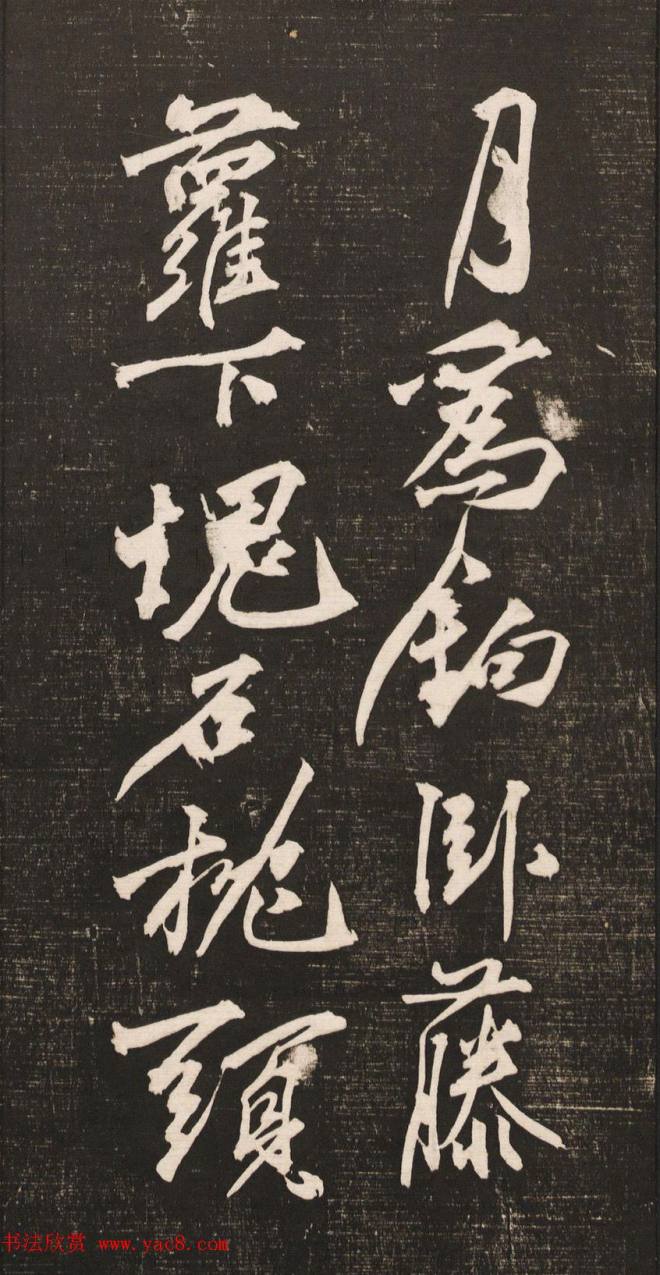 月為鉤卧藤
蘿下塊石枕頭
书法欣赏 www.yac8.com